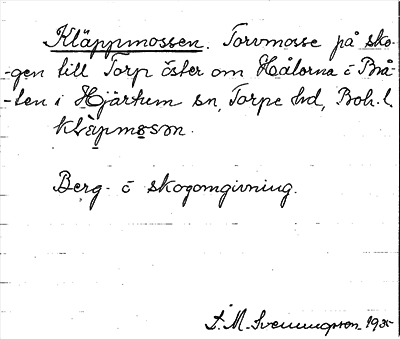 Kläppmossen. Torvmosse på sko-
-gen till Torp öster om Hålorna i Brå-
-ten i Hjärtum sn, Torpe hd, Boh. l
Berg- o skogomgivning.
S. M. Svenungsson 19